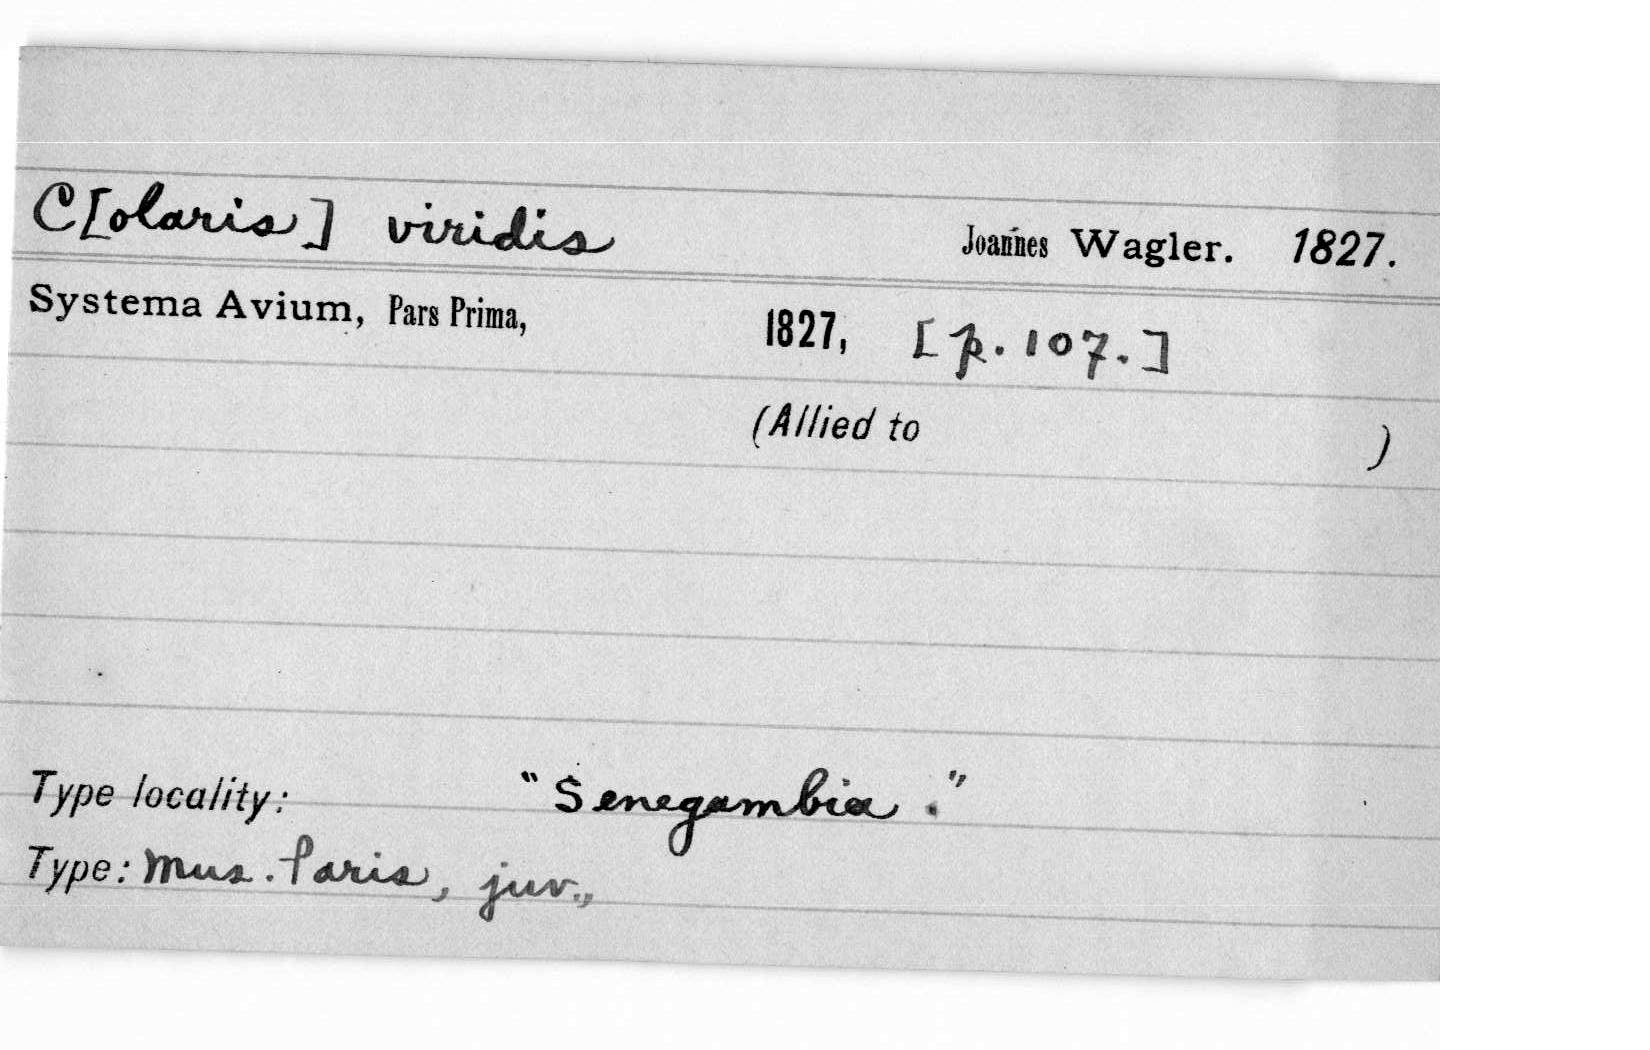 C[olaris] viridis Joannes Wagler. 1827.
Systema Avium, Pars Prima, 1827, [p. 107.]
(Allied to )
Type locality: "Senegambia."
Type: Mus. Paris, juv.,